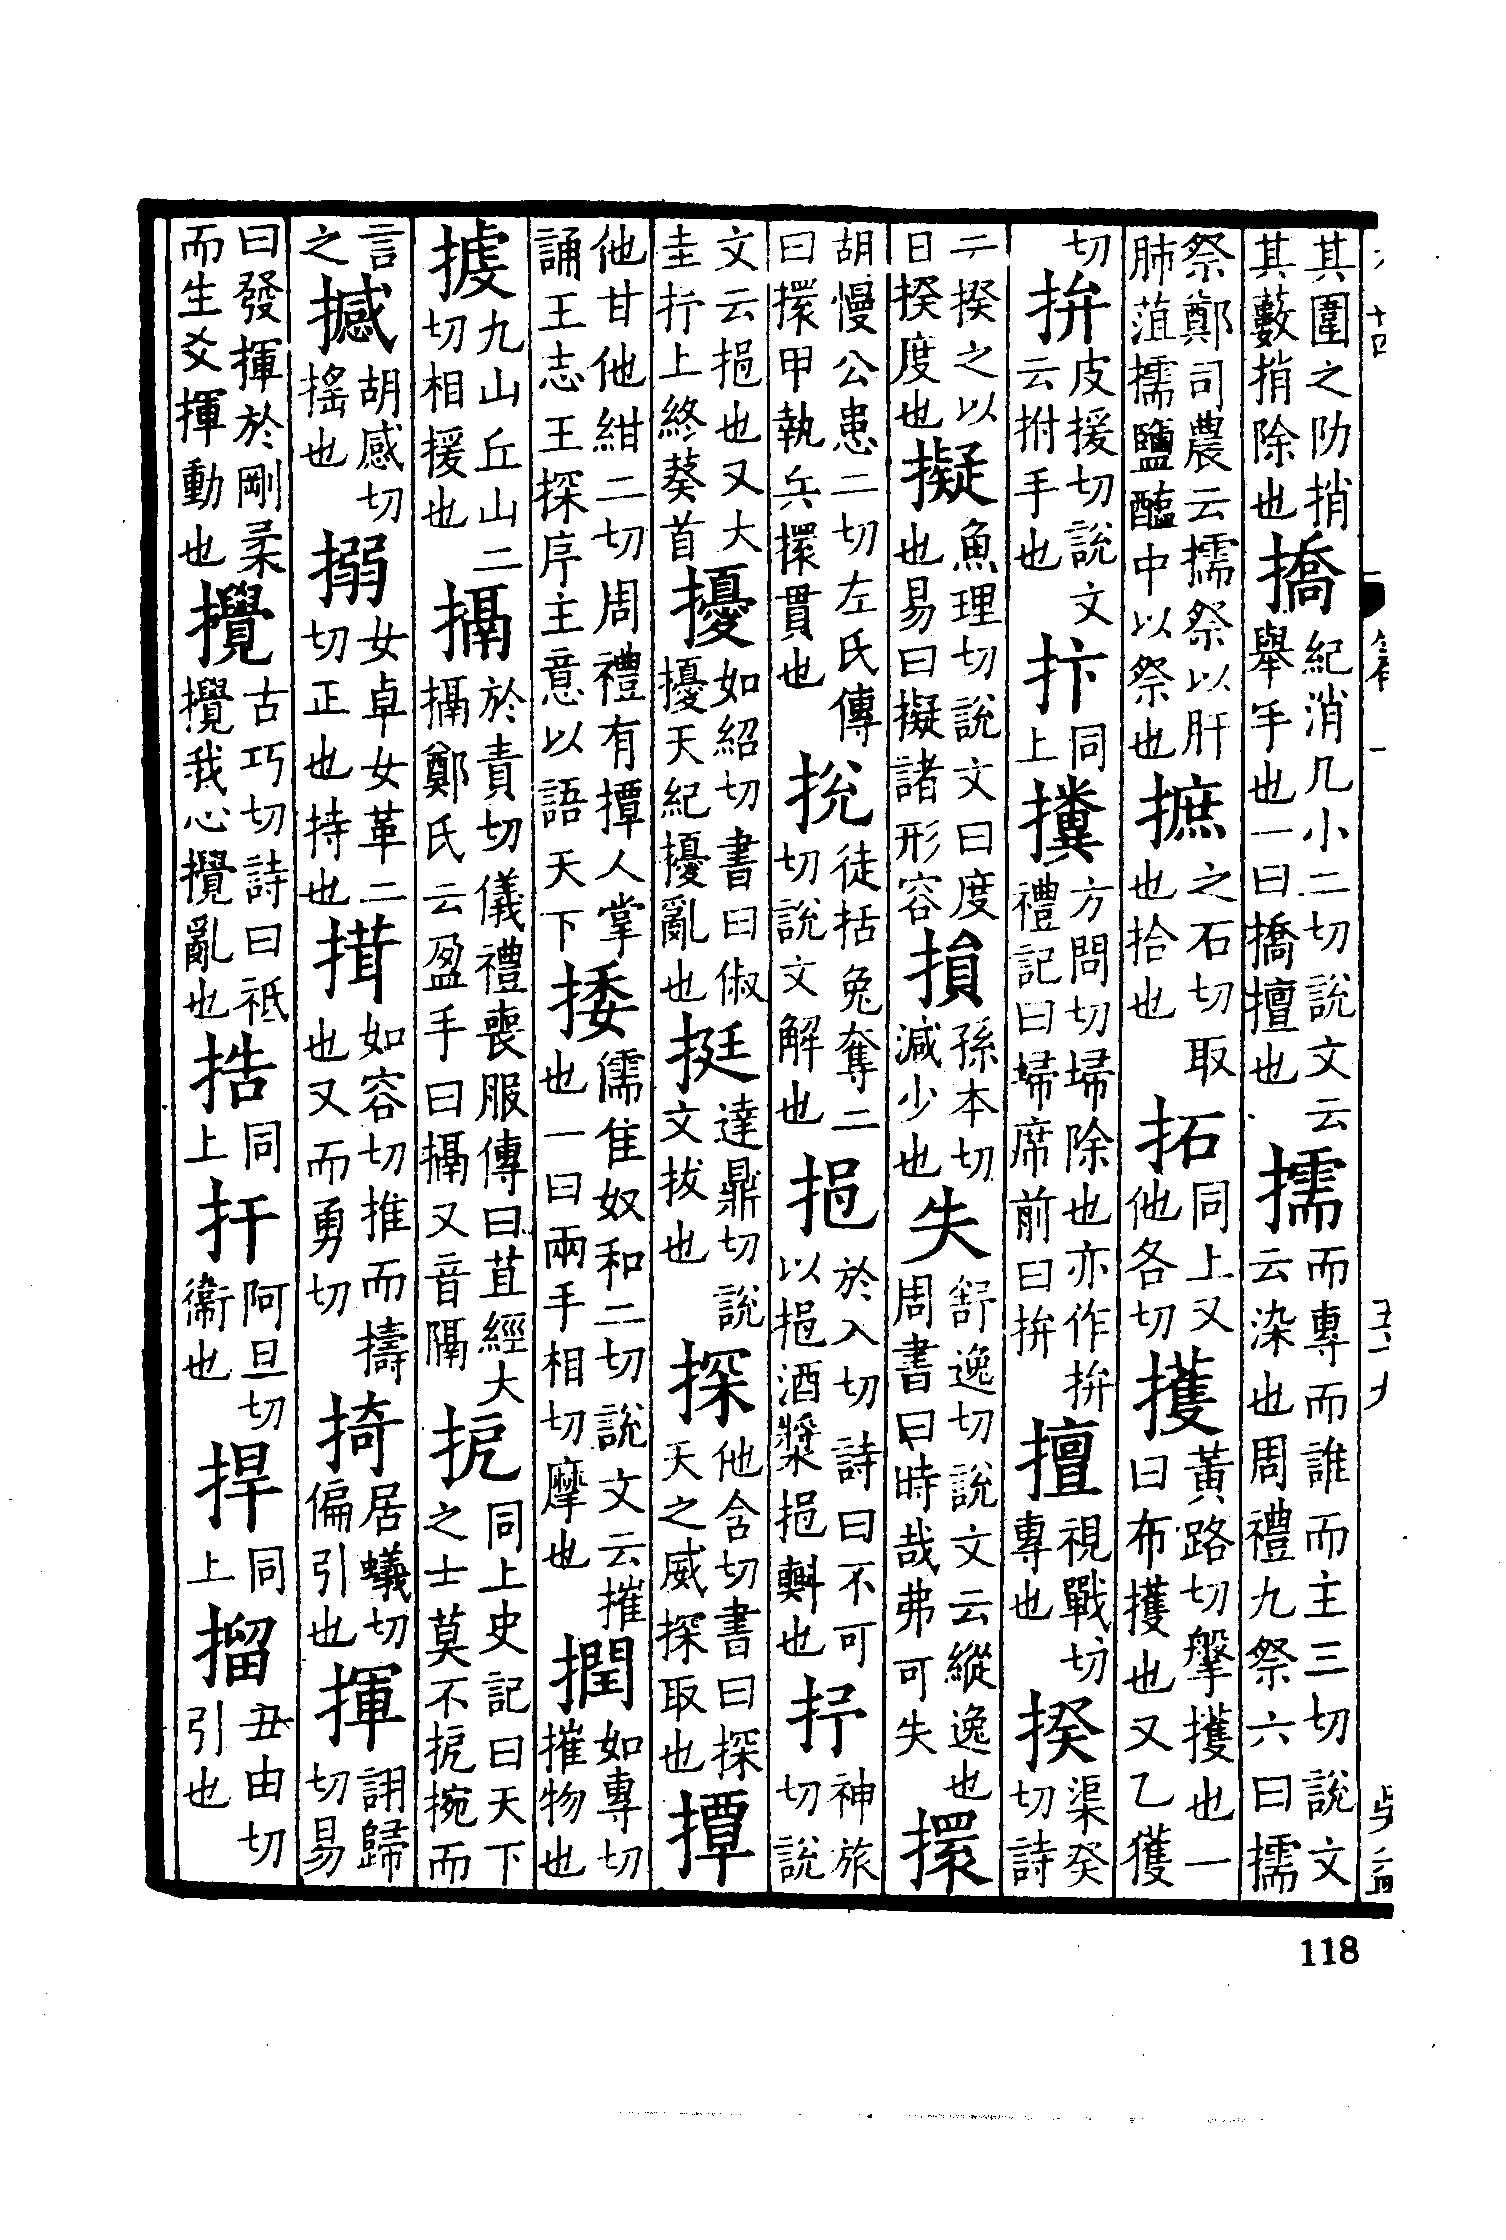 其圍之阞捎其藪捎除也撟紀消几小二切說文云舉手也一曰撟擅也擩而專而誰而主三切說文云染也周禮九祭六曰擩
祭鄭司農云擩祭以肝肺菹擩鹽醢中以祭也摭之石切取也拾也拓同上又他各切擭黃路切擎擭也一曰布擭也又乙獲
切拚皮援切說文云拊手也抃同上攩方問切埽除也亦作拚禮記曰埽席前曰拚擅視戰切專也揆渠癸切詩
云揆之以日揆度也擬魚理切說文曰度也易曰擬諸形容損孫本切減少也失舒逸切說文云縱逸也周書曰時哉弗可失擐
胡慢公患二切左氏傳曰擐甲執兵擐貫也挩徒括兔奪二切說文解也挹於入切詩曰不可以挹酒漿挹㪺也抒神旅切說
文云挹也又大圭抒上終葵首擾如紹切書曰俶擾天紀擾亂也挺達鼎切說文拔也探他含切書曰探天之威探取也撢
他甘他紺二切周禮有撢人掌誦王志王探序主意以語天下捼儒隹奴和二切說文云摧也一曰兩手相切摩也撋如專切摧物也
據九山丘山二切相援也搹於責切儀禮喪服傳曰苴絰大搹鄭氏云盈手曰搹又音隔扼同上史記曰天下之士莫不扼捥而
言之撼胡感切搖也搦女卓女革二切正也持也搑如容切推而擣也又而勇切掎居蟻切偏引也揮詡歸切易
曰發揮於剛柔而生爻揮動也攪古巧切詩曰祇攪我心攪亂也捁同上扞阿旦切衞也捍同上㨨丑由切引也
118